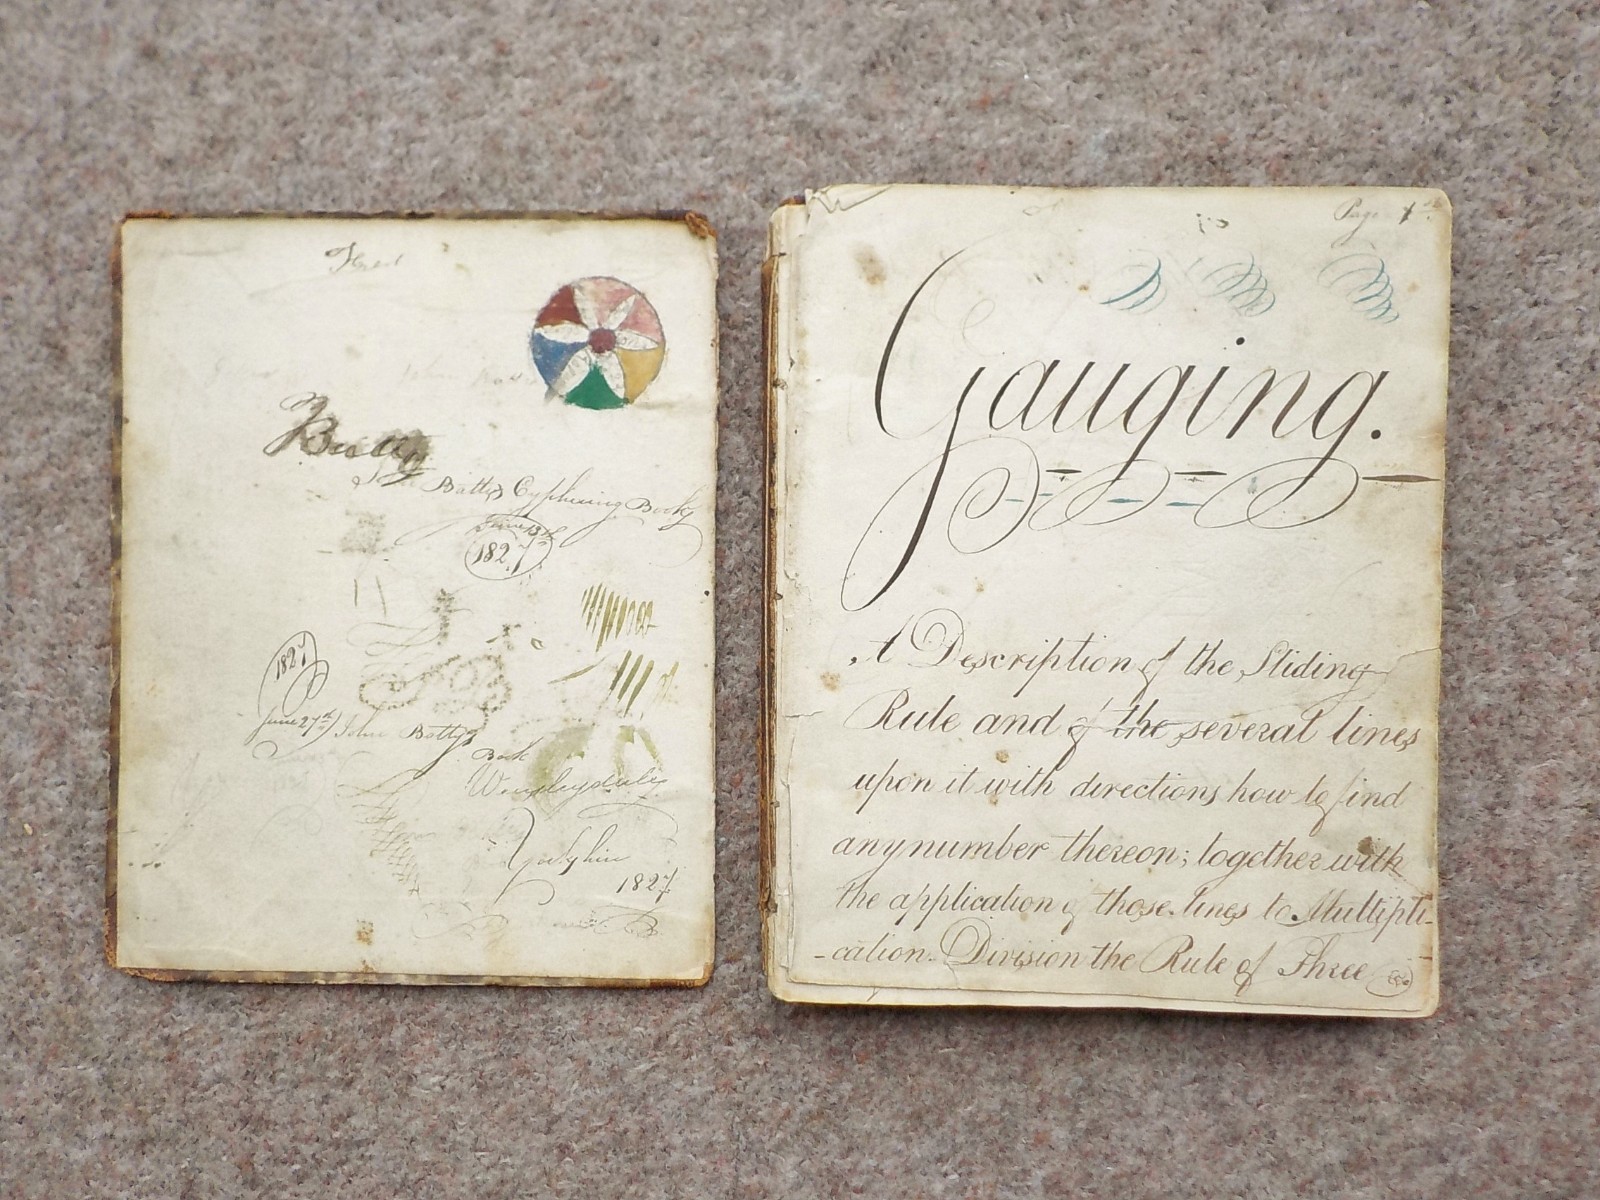 Batty
John Batty's Cyphering Book
June 13th
1827
1827
June 27th John Batty's
Book
Wensleydale
Yorkshire
1827
Page 1st
Gauging.
A Description of the Sliding
Rule and of the several lines
upon it with directions how to find
any number thereon; together with
the application of those lines to Multipli-
-cation. Division the Rule of Three &c